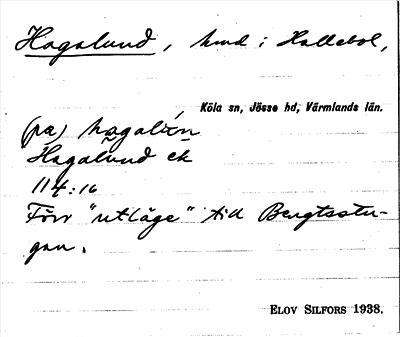 Hagalund, hmd i Hallebol,
Köla sn, Jösse hd, Värmlands län.
(på) hagalúnn
Hagalund ek
114:16
Förr "utläge" till Bengtsstu-
gan.
ELOV SILFORS 1938.